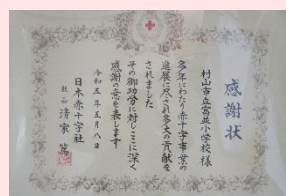 感謝状
村山市立富並小学校様
多年にわたり赤十字事業の
進展に尽され多大の貢献を
されました
その御功労に対しここに深く
感謝の意を表します
令和五年五月八日
日本赤十字社
社長 清家 篤